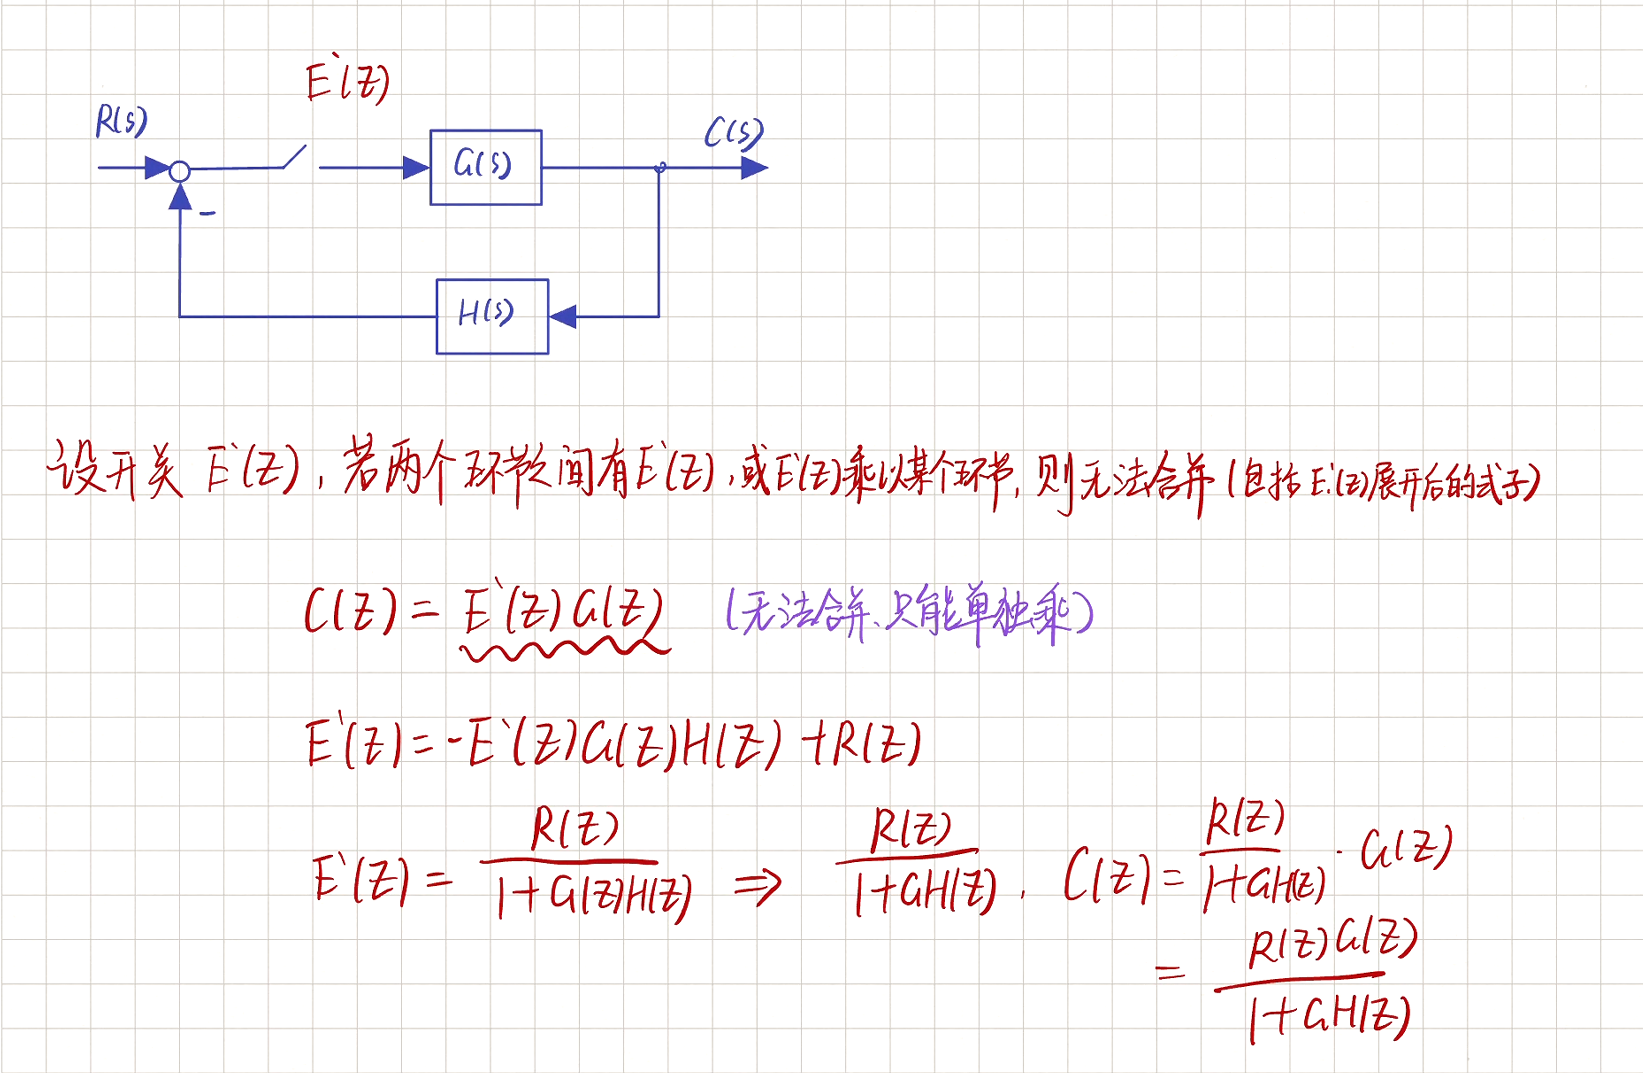 E`(Z)
R(s)
G(s)
C(s)
-
H(s)
设开关 E`(Z), 若两个环节之间有E`(Z), 或E`(Z)乘以某个环节, 则无法合并 (包括E`(Z)展开后的式子)
C(Z) = E`(Z)G(Z) (无法合并、只能单独乘)
E`(Z) = -E`(Z)G(Z)H(Z) + R(Z)
E`(Z) = R(Z) / 1+G(Z)H(Z) ⇒ R(Z) / 1+GH(Z) . C(Z) = R(Z) / 1+GH(Z) · G(Z)
= R(Z)G(Z) / 1+GH(Z)